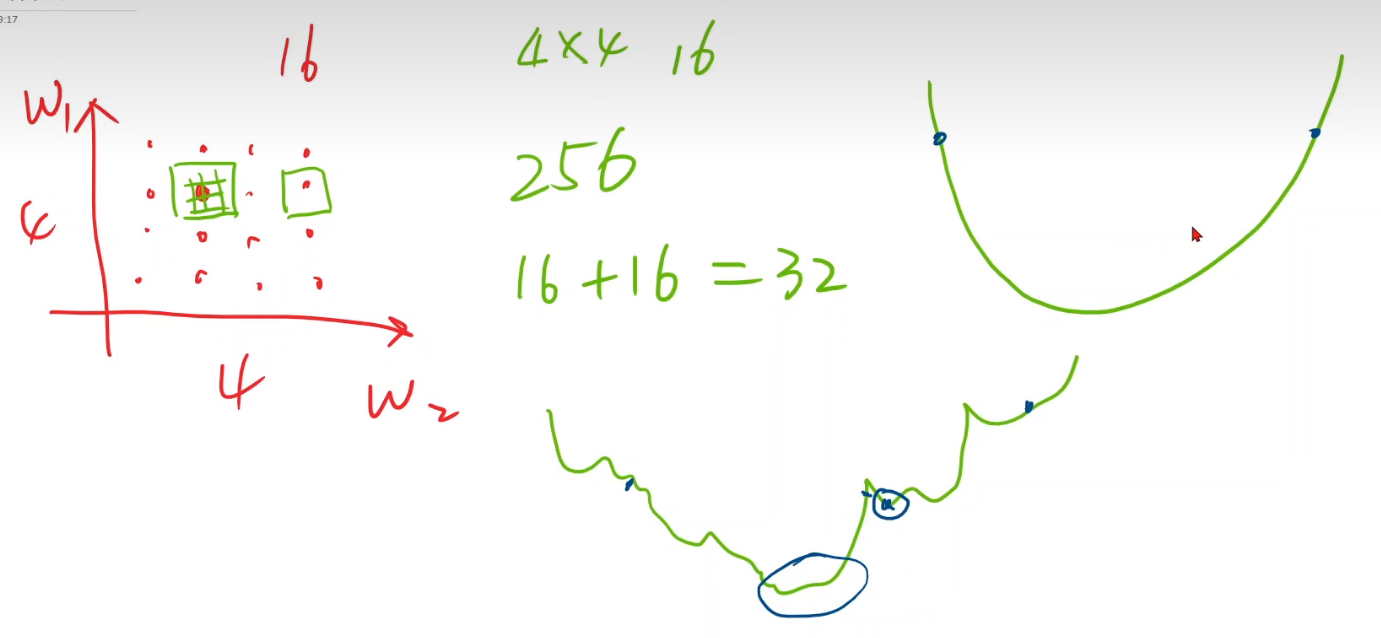 9:17
16
W1
4
4
W2
4×4 16
256
16+16=32